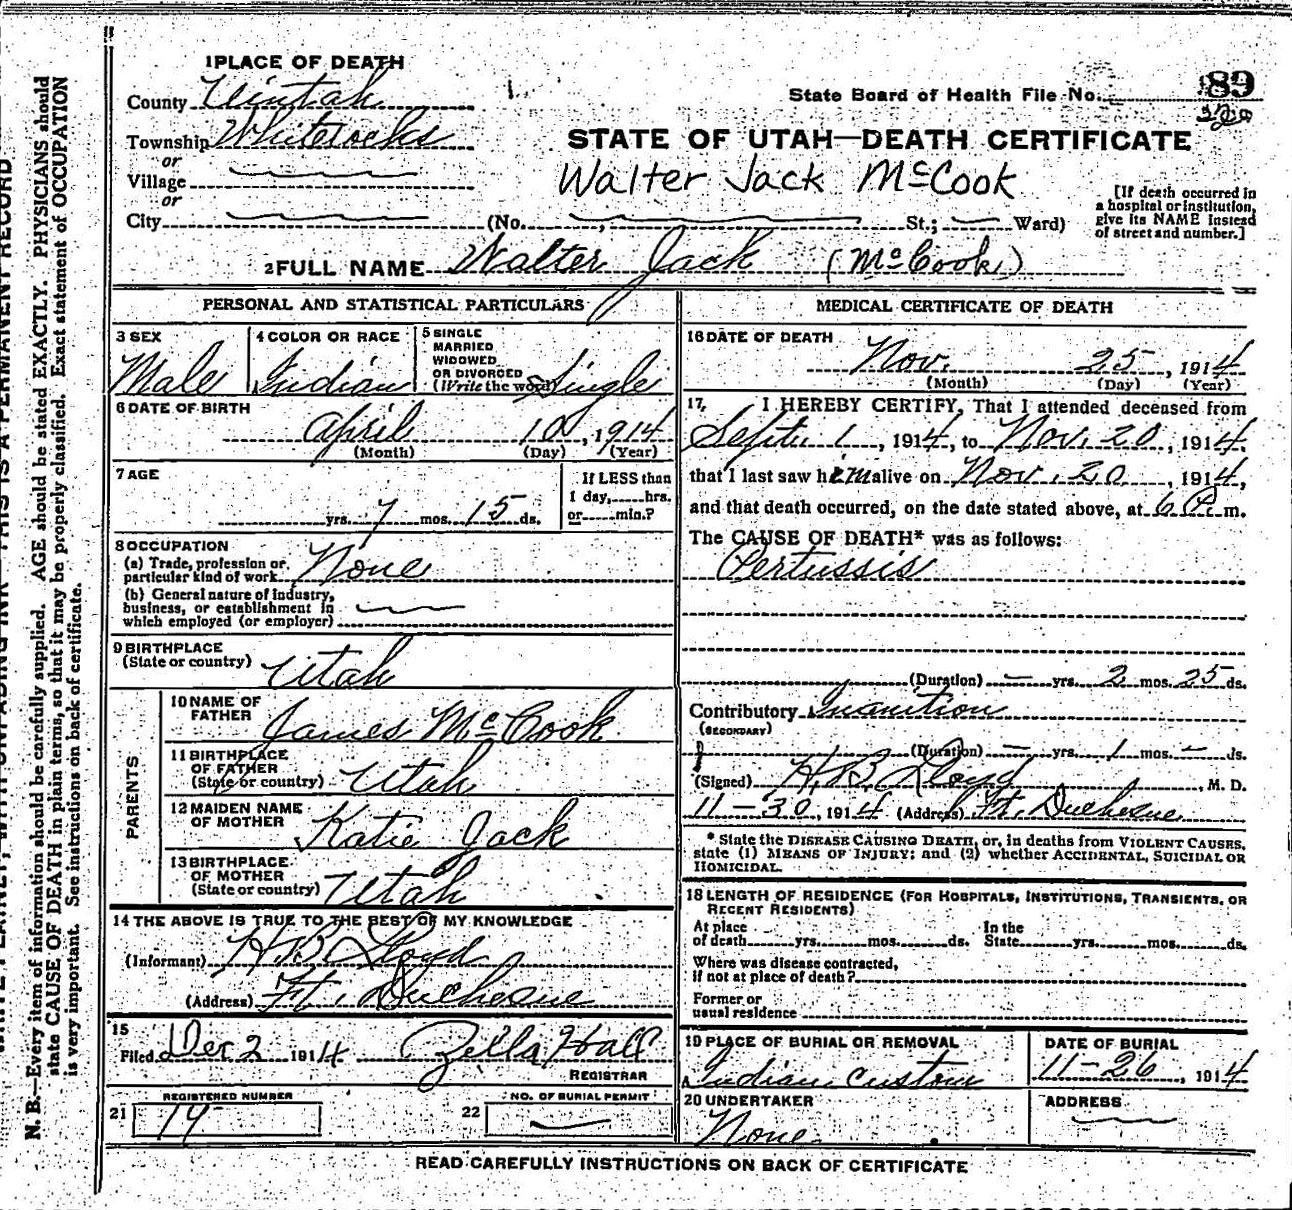 1 PLACE OF DEATH
County Uintah
Township Whiterocks
or
Village
or
City (No. , St.; Ward)
State Board of Health File No. 89
STATE OF UTAH—DEATH CERTIFICATE
Walter Jack McCook
[If death occurred in
a hospital or institution,
give its NAME instead
of street and number.]
2 FULL NAME Walter Jack (McCook)
PERSONAL AND STATISTICAL PARTICULARS
3 SEX
Male
4 COLOR OR RACE
Indian
5 SINGLE
MARRIED
WIDOWED
OR DIVORCED
(Write the word) Single
6 DATE OF BIRTH
April 10, 1914
(Month) (Day) (Year)
7 AGE
yrs. 7 mos. 15 ds.
If LESS than
1 day, hrs.
or min.?
8 OCCUPATION
(a) Trade, profession or
particular kind of work None
(b) General nature of industry,
business, or establishment in
which employed (or employer)
9 BIRTHPLACE
(State or country) Utah
PARENTS
10 NAME OF
FATHER James McCook
11 BIRTHPLACE
OF FATHER
(State or country) Utah
12 MAIDEN NAME
OF MOTHER Katie Jack
13 BIRTHPLACE
OF MOTHER
(State or country) Utah
14 THE ABOVE IS TRUE TO THE BEST OF MY KNOWLEDGE
(Informant) H B Lloyd
(Address) Ft. Duchesne
15
Filed Dec 2 1914 Zella Hall
REGISTRAR
21 REGISTERED NUMBER
19
22 NO. OF BURIAL PERMIT
MEDICAL CERTIFICATE OF DEATH
16 DATE OF DEATH
Nov. 25, 1914
(Month) (Day) (Year)
17. I HEREBY CERTIFY, That I attended deceased from
Sept. 1, 1914, to Nov. 20, 1914,
that I last saw him alive on Nov. 20, 1914,
and that death occurred, on the date stated above, at 6 P. m.
The CAUSE OF DEATH* was as follows:
Pertussis
(Duration) — yrs. 2 mos. 25 ds.
Contributory Inanition
(SECONDARY)
(Duration) — yrs. 1 mos. — ds.
(Signed) H. B. Lloyd, M. D.
11-30, 1914 (Address) Ft. Duchesne
* State the DISEASE CAUSING DEATH, or, in deaths from VIOLENT CAUSES,
state (1) MEANS OF INJURY; and (2) whether ACCIDENTAL, SUICIDAL OR
HOMICIDAL.
18 LENGTH OF RESIDENCE (FOR HOSPITALS, INSTITUTIONS, TRANSIENTS, OR
RECENT RESIDENTS)
At place
of death yrs. mos. ds.
In the
State yrs. mos. ds.
Where was disease contracted,
if not at place of death?
Former or
usual residence
19 PLACE OF BURIAL OR REMOVAL
Indian custom
DATE OF BURIAL
11-26, 1914
20 UNDERTAKER
None
ADDRESS
READ CAREFULLY INSTRUCTIONS ON BACK OF CERTIFICATE
N. B.—Every item of information should be carefully supplied. AGE should be stated EXACTLY. PHYSICIANS should
state CAUSE OF DEATH in plain terms, so that it may be properly classified. Exact statement of OCCUPATION
is very important. See instructions on back of certificate.